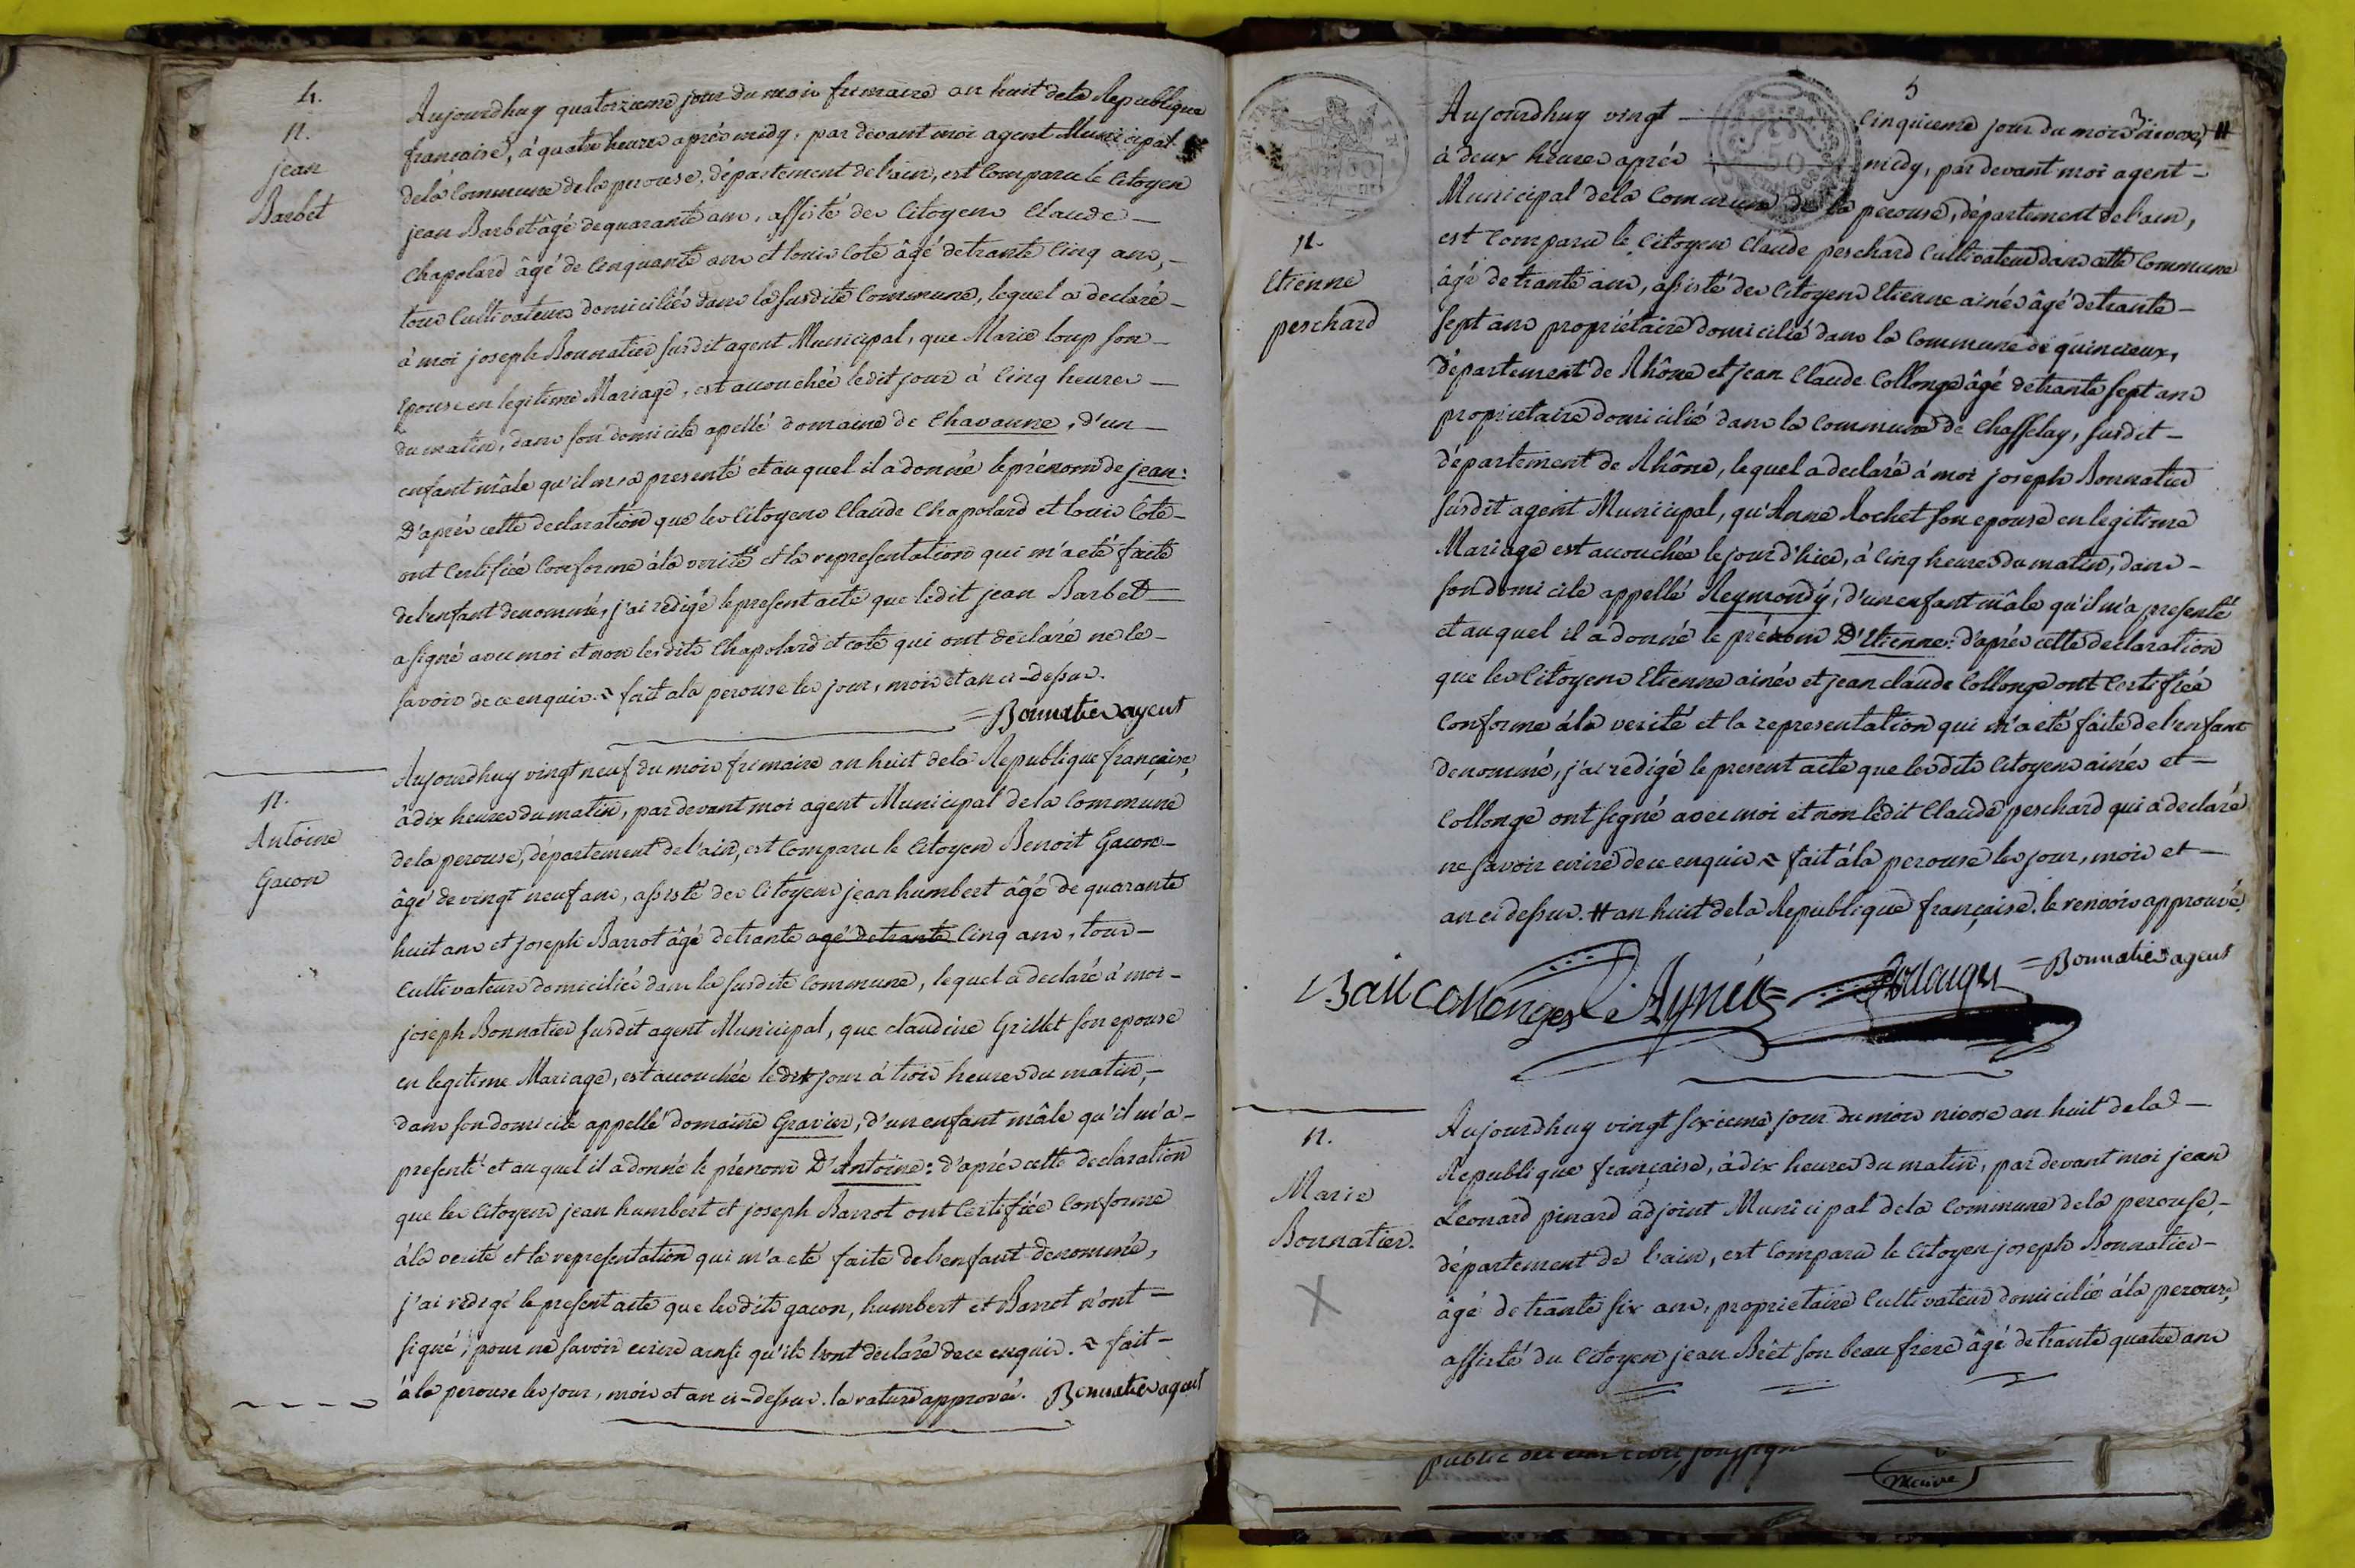 4.
N.
jean
Barbet
Aujourdhuy quatorzieme jour du mois frimaire an huit dela Republique
francaise, à quatre heures aprés midy, par devant moi agent Municipal
dela Commune dela perouse, département del'ain, est Comparu le Citoyen
jean Barbet âgé de quarante ans, assisté des Citoyens Claude
Chapolard âgé de Cinquante ans et louis Cote âgé detrante Cinq ans,
tous Cultivateurs domiciliés dans la susdite Commune, lequel a declaré
à moi joseph Bonnatier susdit agent Municipal, que Marie loup son
Epouse en legitime Mariage, est accouchée ledit jour à Cinq heures
du matin, dans son domicile apellé domaine de Chavanne, d'un
enfant mâle qu'il m'a presenté et au quel il a donné le prénom de jean:
D'aprés cette declaration que les Citoyens Claude Chapolard et louis Cote
ont Certifiée Conforme àla verité et la representation qui m'a eté faite
del'enfant denommé, j'ai redigé le present acte que ledit jean Barbet
a signé avec moi et non lesdits Chapolard et cote qui ont déclaré ne le
savoir de ce enquis. fait ala perouse les jour, mois et an ci-dessus.
= Bonnatier agent
N.
Antoine
Gacon
Aujourdhuy vingt neuf du mois frimaire an huit dela Republique française,
à dix heures du matin, par devant moi agent Municipal de la Commune
dela perouse, département del'ain, est Comparu le Citoyen Benoit Gacon
âgé de vingt neuf ans, assisté des Citoyens jean humbert âgé de quarante
huit ans et joseph Barrot âgé detrante agé detrante Cinq ans, tous
Cultivateurs domiciliés dans la susdite Commune, lequel a declaré à moi
joseph Bonnatier susdit agent Municipal, que claudine Grillet son epouse
en legitime Mariage, est accouchée ledit jour à trois heures du matin,
dans son domicile appellé domaine Gravier, d'un enfant mâle qu'il m'a
presenté et au quel il a donné le prénom D'Antoine: d'aprés cette declaration
que les Citoyens jean humbert et joseph Barrot ont Certifiée Conforme
àla verité et la representation qui m'a eté faite del'enfant denommé,
j'ai redigé le present acte que lesdits gacon, humbert et Barrot n'ont
signé, pour ne savoir ecrire ainsi qu'ils l'ont déclaré dece enquis. fait
àla perouse les jour, mois et an ci-dessus. la rature approuvée. Bonnatier agent
5
N.
Etienne
peschard
Aujourdhuy vingt Cinquieme jour du mois Nivose, #
à deux heures aprés midy, par devant moi agent
Municipal dela Commune de la perouse, département del'ain,
est Comparu le Citoyen Claude peschard Cultivateur dans cette Commune
âgé detrante ans, assisté des Citoyens Etienne ainés âgé detrante
sept ans propriétaire domicilié dans la Commune de quincieux,
département de Rhône et jean Claude Collonge âgé detrante sept ans
proprietaire domicilié dans la Commune de Chasselay, susdit
département de Rhône, lequel a declaré à moi joseph Bonnatier
susdit agent Municipal, qu'Anne Rochet son epouse en legitime
Mariage est accouchée le jour d'hier, à Cinq heures du matin, dans
son domicile appellé Reymondy, d'un enfant mâle qu'il m'a presenté
et au quel il a donné le prénom D'Etienne: d'aprés cette declaration
que les Citoyens Etienne ainés et jean claude Collonge ont Certifiée
Conforme àla verité et la representation qui m'a eté faite del'enfant
denommé, j'ai redigé le present acte que lesdits Citoyens ainés et
Collonge ont signé avec moi et non ledit Claude peschard qui a declaré
ne savoir ecrire de ce enquis fait àla perouse les jour, mois et
an ci dessus. # an huit dela Republique française. le renvois approuvé.
Collonge Aynés = Bonnatier agent
N.
Marie
Bonnatier.
X
Aujourdhuy vingt sixieme jour du mois nivose an huit dela
Republique française, à dix heures du matin, par devant moi jean
Léonard pinard adjoint Municipal dela Commune dela perouse,
département de l'ain, est Comparu le Citoyen joseph Bonnatier
âgé detrante six ans, proprietaire Cultivateur domicilié àla perouse,
assisté du Citoyen jean Brêt son beau frere âgé detrante quatre ans
public
maire